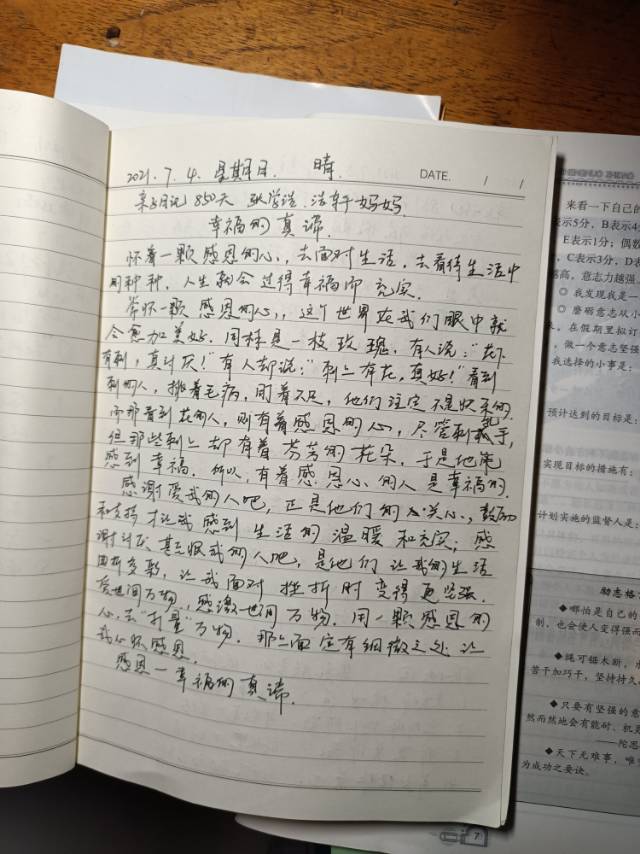 2021.7.4. 星期日. 晴. DATE. / /
亲子日记 850天 张学浩. 洁轩妈妈.
幸福的真谛.
怀着一颗感恩的心,去面对生活,去看待生活中
的种种,人生就会过得幸福而充实.
常怀一颗感恩的心,这个世界在我们眼中就
会愈加美好.同样是一枝玫瑰,有人说:"花下
有刺,真讨厌!"有人却说:"刺上有花,真好!"看到
刺的人,挑着毛病,同着不足,他们注定不是快乐的.
而那看到花的人,则有着感恩的心,尽管刺扎手,
但那些刺上却有着芬芳的花朵,于是他能
感到幸福.所以,有着感恩心的人是幸福的.
感谢爱我的人吧,正是他们的关心,鼓励
和支持才让我感到生活的温暖和充实;感
谢讨厌甚至恨我的人吧,是他们让我的生活
曲折多彩,让我面对挫折时变得更坚强.
爱世间万物,感激世间万物.用一颗感恩的
心,去"打量"万物.那上面定有细微之处让
我心怀感恩.
感恩一幸福的真谛.
来看一下自己的
示5分,B表示4
E表示1分;偶数
,C表示3分,D表
越高,意志力越强
◎ 我发现我是一
◎ 磨砺意志从小
。在假期里拟订
,做一个意志坚强
我选择的小事是:
预计达到的目标是:
实现目标的措施有:
计划实施的监督人是:
励志格
◆哪怕是自己的
制,也会使人变得强而
◆绳可锯木断,水
苦干加巧干,坚持持久
◆只要有坚强的意
然而然地会有能耐、机灵
——陀思
◆天下无难事,唯
为成功之要诀。
7